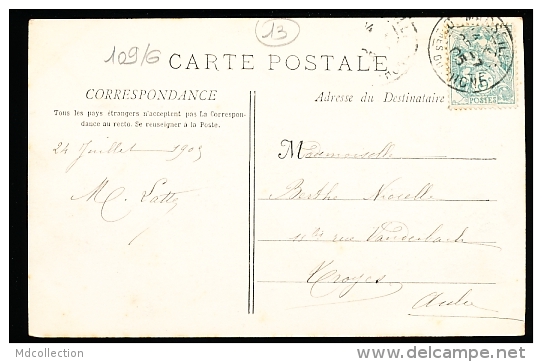 109/6
13
CARTE POSTALE
CORRESPONDANCE
Tous les pays étrangers n'acceptent pas la Correspon-
dance au recto. Se renseigner à la Poste.
Adresse du Destinataire
POSTES
24 Juillet 1903
M. Latty
Mademoiselle
Berthe Nicolle
11 bis rue
Troyes
Aube
Mdcollection
http://www.delcampe.net